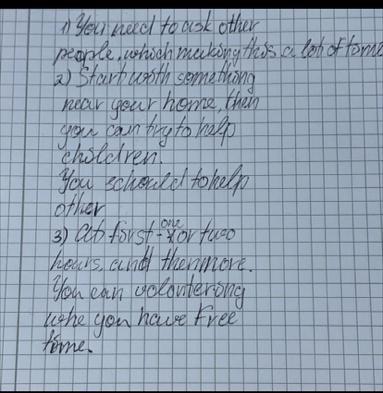 1) You need to ask other
people, which making this a lot of time
2) Start with something
near your home, then
you can try to help
children.
You schould to help
other
3) At first - one or two
hours, and then more.
You can volonterong
whe you have Free
time.